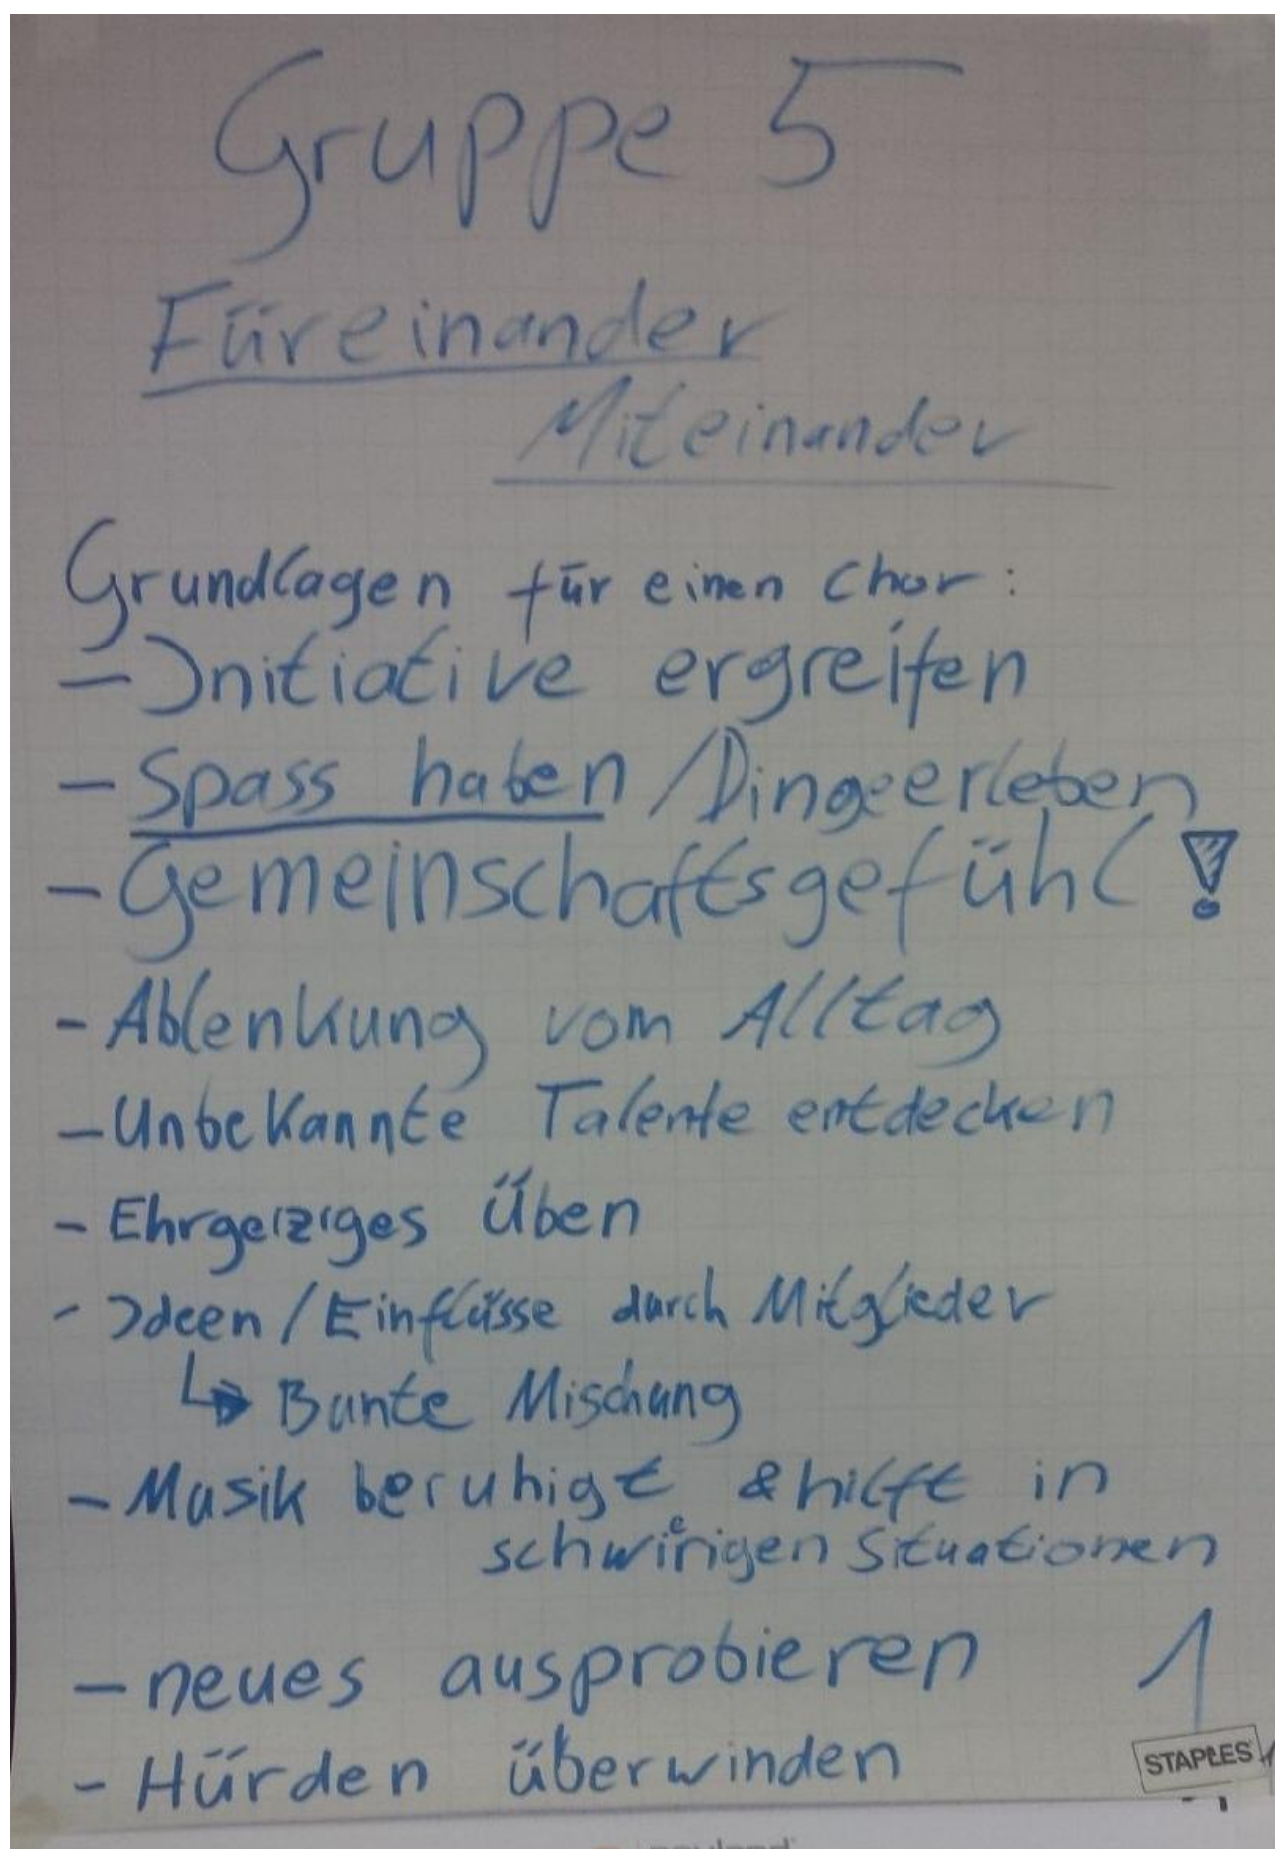 Gruppe 5
Füreinander
Miteinander
Grundlagen für einen Chor:
- Initiative ergreifen
- Spass haben / Dinge erleben
- Gemeinschaftsgefühl!
- Ablenkung vom Alltag
- Unbekannte Talente entdecken
- Ehrgeiziges Üben
- Ideen / Einflüsse durch Mitglieder
↳ Bunte Mischung
- Musik beruhigt & hilft in
schwierigen Situationen
- neues ausprobieren
1
- Hürden überwinden
STAPLES